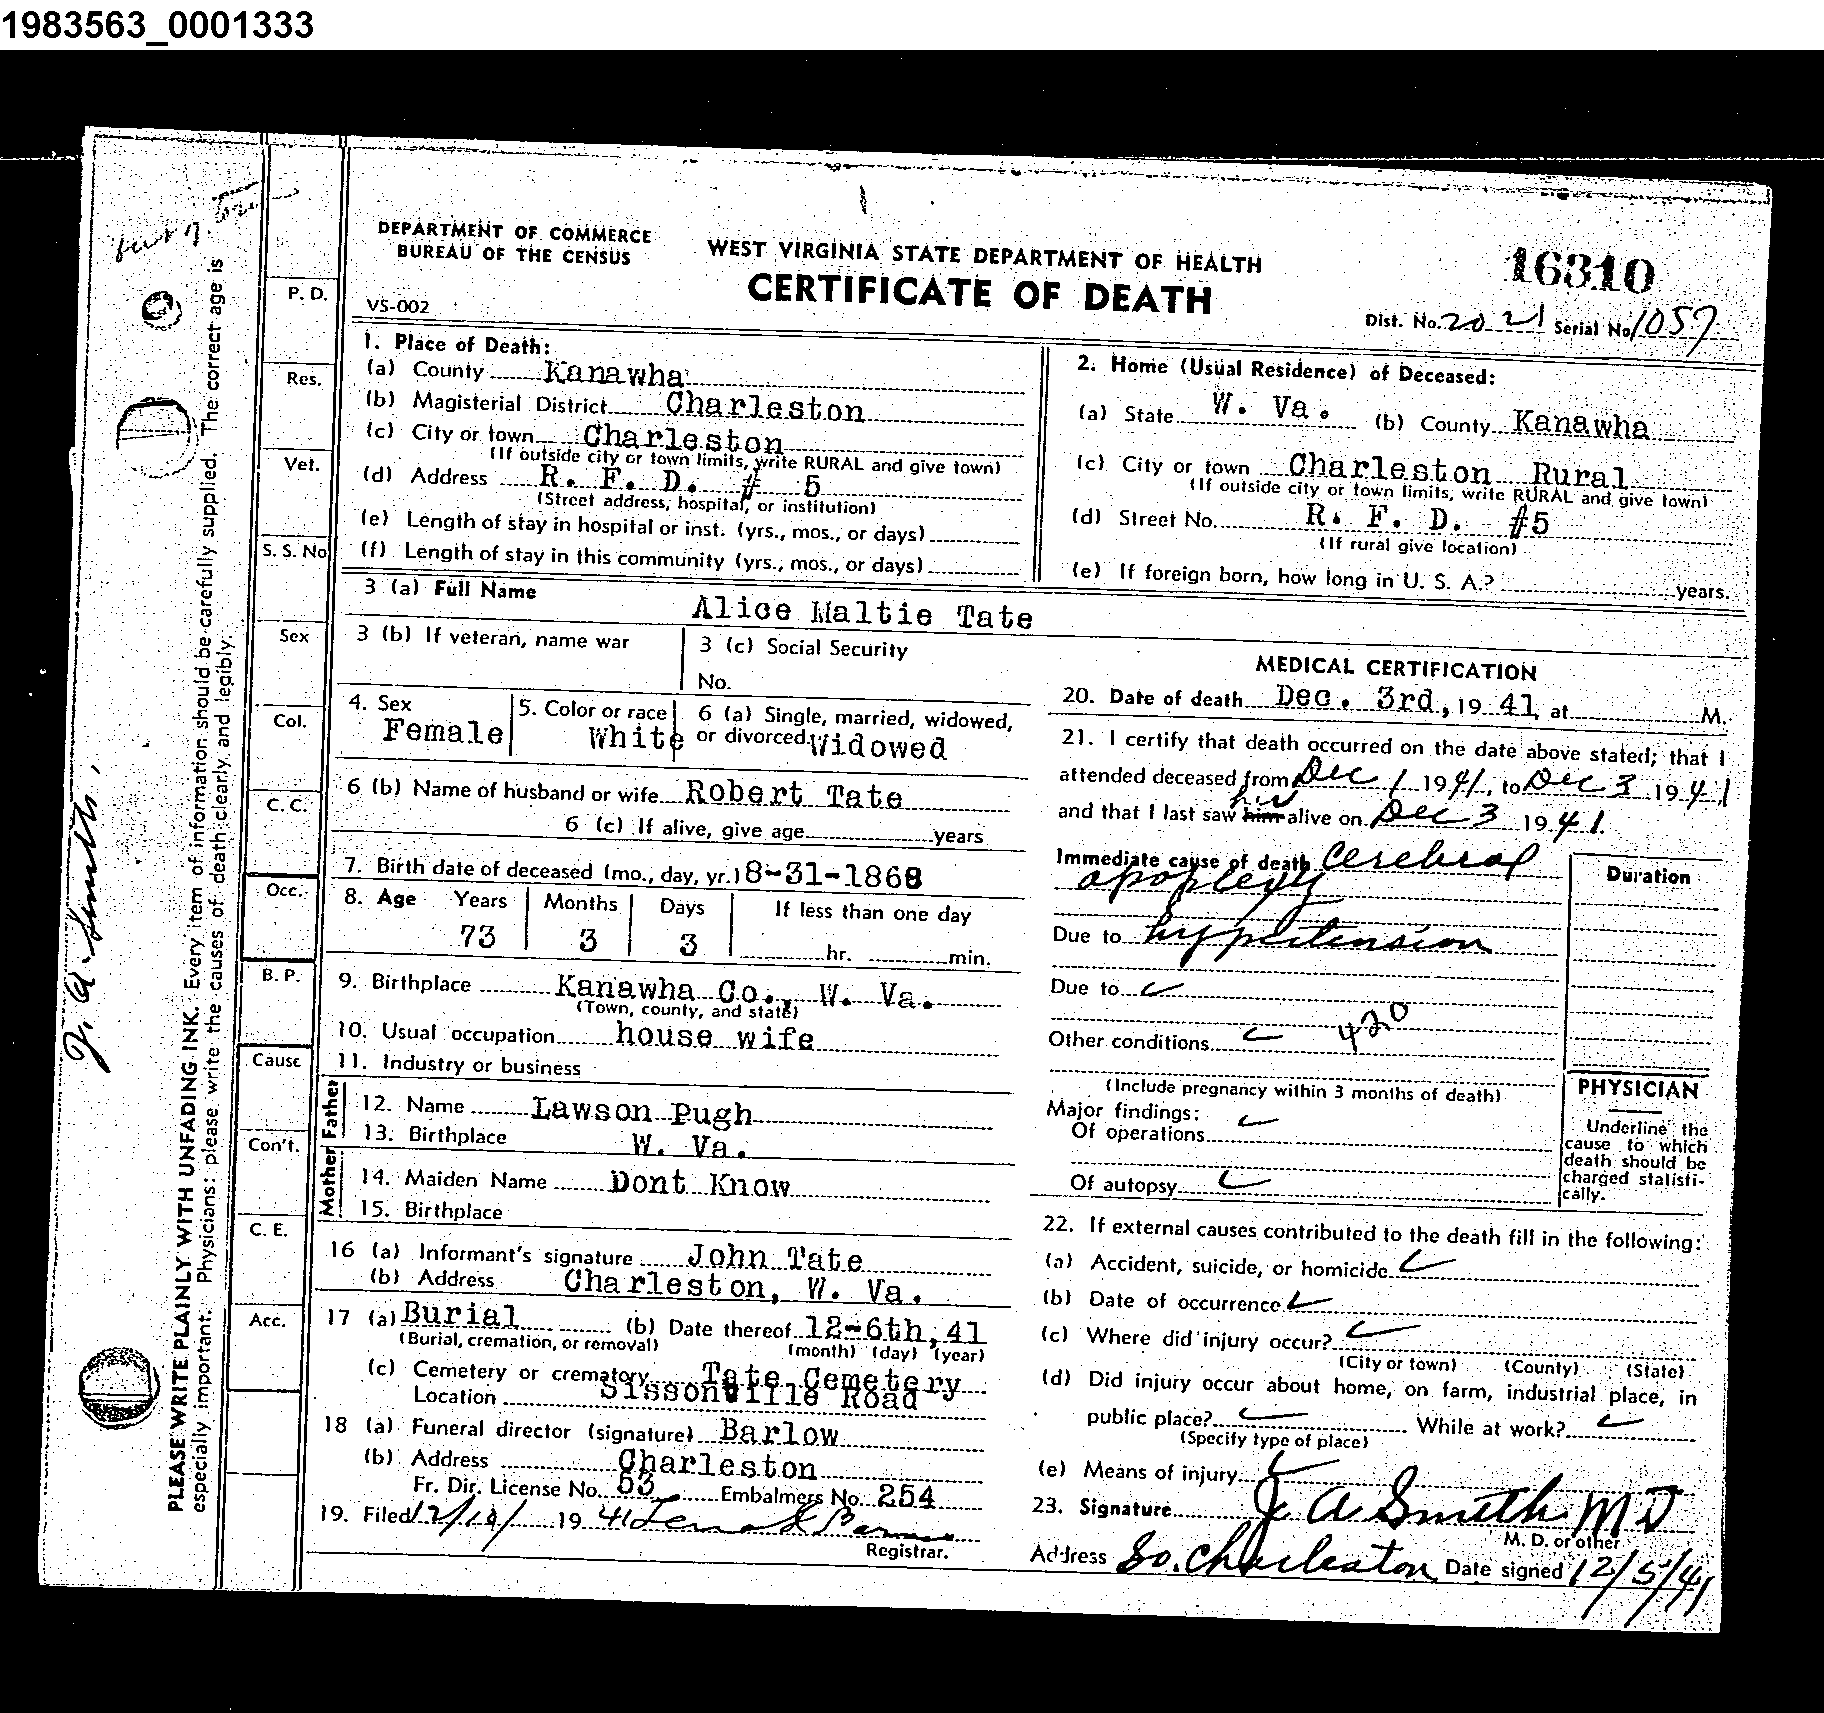 1983563_0001333
DEPARTMENT OF COMMERCE
BUREAU OF THE CENSUS
VS-002
WEST VIRGINIA STATE DEPARTMENT OF HEALTH
CERTIFICATE OF DEATH
16310
Dist. No. 20 21 Serial No. 1057
1. Place of Death:
(a) County Kanawha
(b) Magisterial District Charleston
(c) City or town Charleston
(If outside city or town limits, write RURAL and give town)
(d) Address R. F. D. # 5
(Street address, hospital, or institution)
(e) Length of stay in hospital or inst. (yrs., mos., or days)
(f) Length of stay in this community (yrs., mos., or days)
2. Home (Usual Residence) of Deceased:
(a) State W. Va. (b) County Kanawha
(c) City or town Charleston Rural
(If outside city or town limits, write RURAL and give town)
(d) Street No. R. F. D. #5
(If rural give location)
(e) If foreign born, how long in U. S. A.? years.
3 (a) Full Name Alice Maltie Tate
3 (b) If veteran, name war
3 (c) Social Security
No.
4. Sex
Female
5. Color or race
White
6 (a) Single, married, widowed,
or divorced. Widowed
6 (b) Name of husband or wife Robert Tate
6 (c) If alive, give age years
7. Birth date of deceased (mo., day, yr.) 8-31-1868
8. Age Years Months Days If less than one day
73 3 3 hr. min.
9. Birthplace Kanawha Co., W. Va.
(Town, county, and state)
10. Usual occupation house wife
11. Industry or business
Father
12. Name Lawson Pugh
13. Birthplace W. Va.
Mother
14. Maiden Name Dont Know
15. Birthplace
16 (a) Informant's signature John Tate
(b) Address Charleston, W. Va.
17 (a) Burial (b) Date thereof 12-6th, 41
(Burial, cremation, or removal) (month) (day) (year)
(c) Cemetery or crematory Tate Cemetery
Location Sissonville Road
18 (a) Funeral director (signature) Barlow
(b) Address Charleston
Fr. Dir. License No. 53 Embalmers No. 254
19. Filed 12/10/ 19 41
Registrar.
MEDICAL CERTIFICATION
20. Date of death Dec. 3rd, 19 41 at M.
21. I certify that death occurred on the date above stated; that I
attended deceased from Dec 1 1941, to Dec 3 1941
and that I last saw him alive on Dec 3 1941.
Immediate cause of death Cerebral
apoplexy
Due to hypertension
Due to
Other conditions 420
(Include pregnancy within 3 months of death)
Major findings:
Of operations
Of autopsy
Duration
PHYSICIAN
Underline the
cause to which
death should be
charged statisti-
cally.
22. If external causes contributed to the death fill in the following:
(a) Accident, suicide, or homicide
(b) Date of occurrence
(c) Where did injury occur?
(City or town) (County) (State)
(d) Did injury occur about home, on farm, industrial place, in
public place? While at work?
(Specify type of place)
(e) Means of injury
23. Signature J. A Smith MD
M. D. or other
Address So. Charleston Date signed 12/5/41
P. D.
Res.
Vet.
S. S. No
Sex
Col.
C. C.
Occ.
B. P.
Cause
Con't.
C. E.
Acc.
PLEASE WRITE PLAINLY WITH UNFADING INK. Every item of information should be carefully supplied. The correct age is
especially important. Physicians: please write the causes of death clearly and legibly.
J. A. Smith.